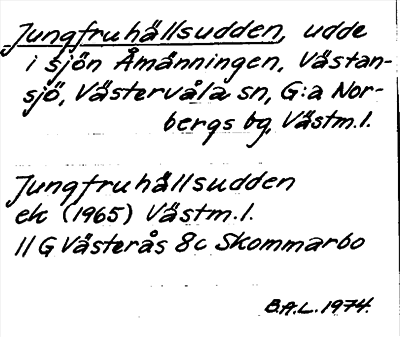 Jungfruhällsudden, udde
i sjön Åmänningen, Västan-
sjö, Västervåla sn, G:a Nor-
bergs bg, Västm.l.
Jungfruhällsudden
ek (1965) Västm.l.
11 G Västerås 8c Skommarbo
B.A.L. 1974.